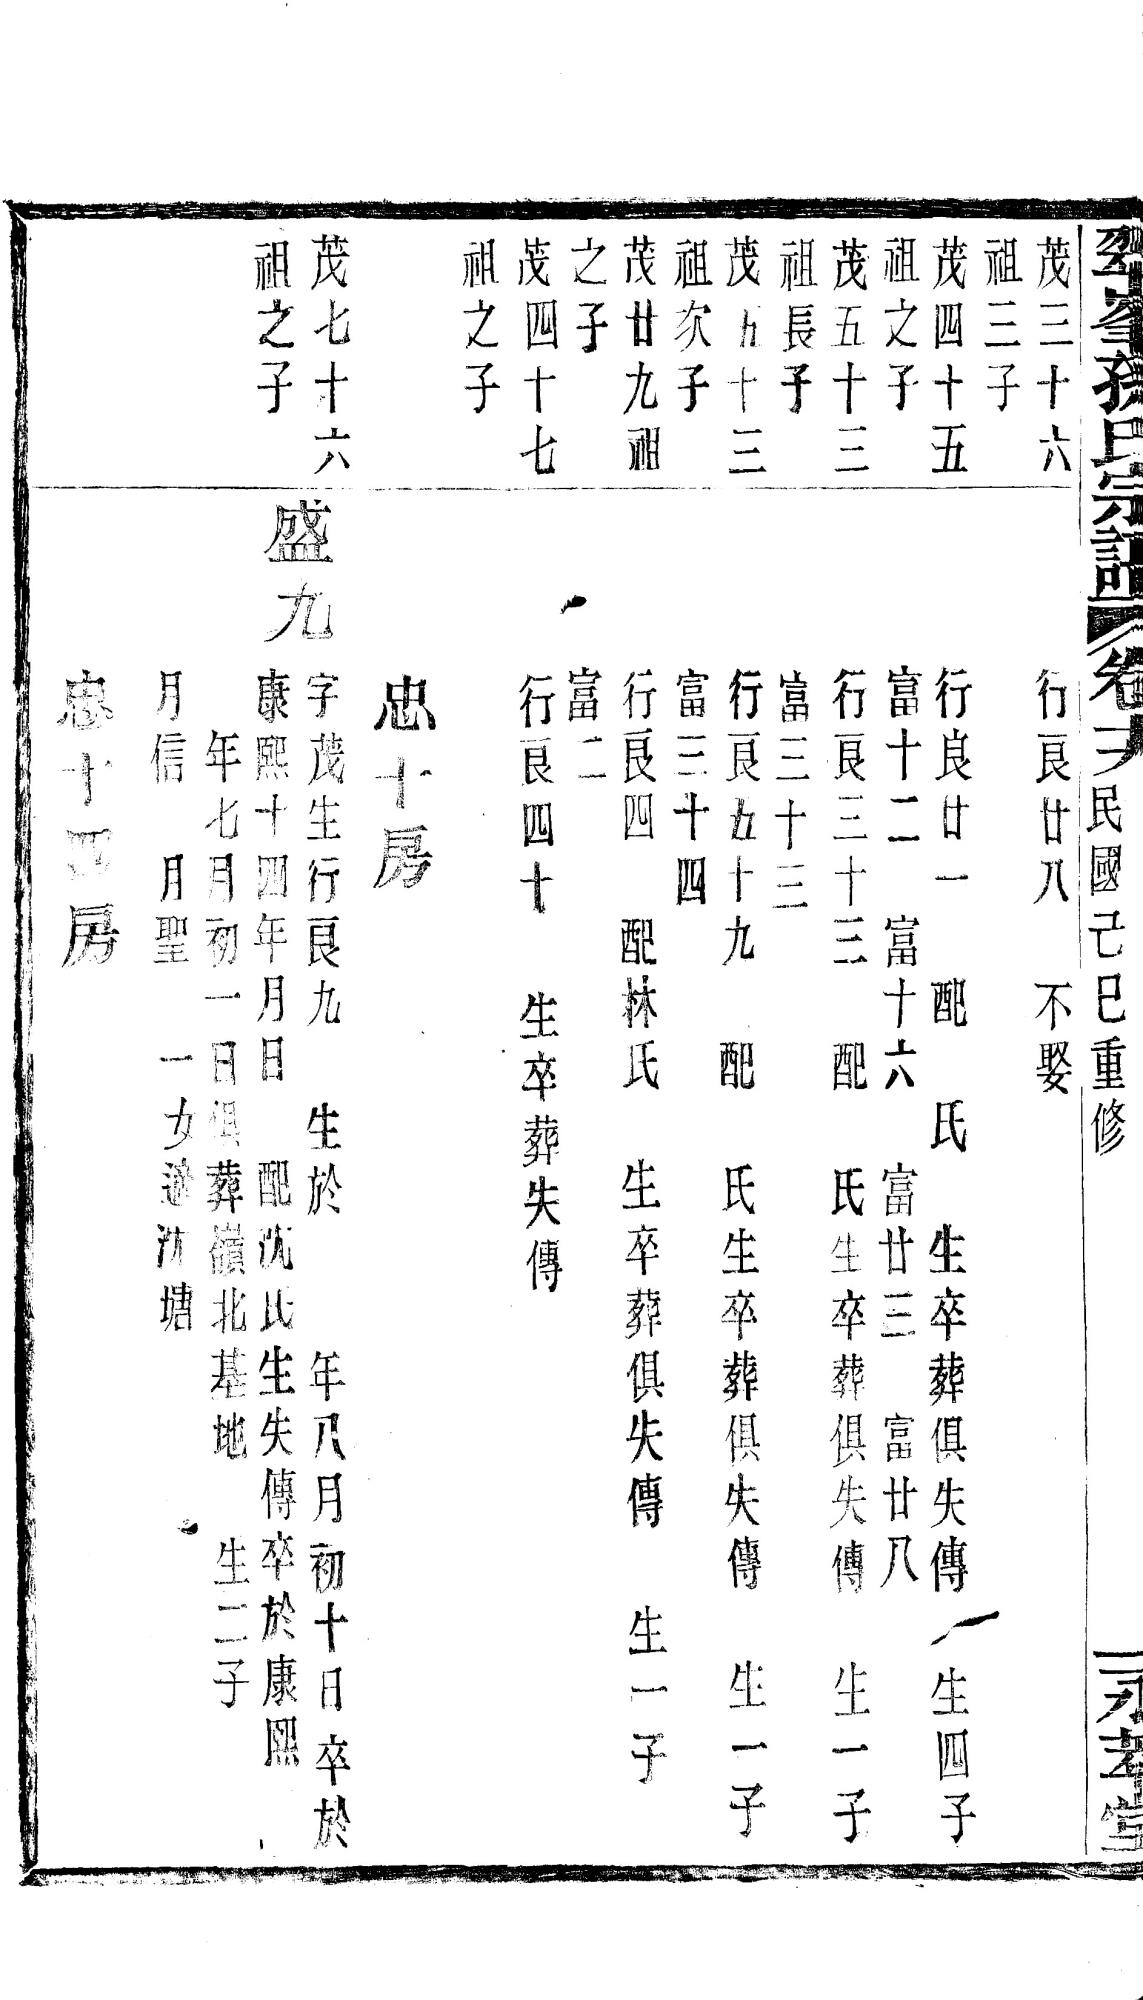 孫氏宗譜 卷 民國己巳重修
茂三十六
祖三子
行良廿八 不娶
茂四十五
祖之子
行良廿一 配 氏 生卒葬俱失傳 生四子
富十二 富十六 富廿三 富廿八
茂五十三
祖長子
行良三十三 配 氏生卒葬俱失傳 生一子
富三十三
茂五十三
祖次子
行良五十九 配 氏生卒葬俱失傳 生一子
富三十四
茂廿九祖
之子
行良四 配林氏 生卒葬俱失傳 生一子
富二
茂四十七
祖之子
行良四十 生卒葬失傳
忠十房
茂七十六
祖之子
盛九
字茂生行良九 生於 年八月初十日卒於
康熙十四年月日 配沈氏生失傳卒於康熙
年七月初一日俱葬嶺北基地 生二子
月信 月聖 一女適沈塘
忠十四房